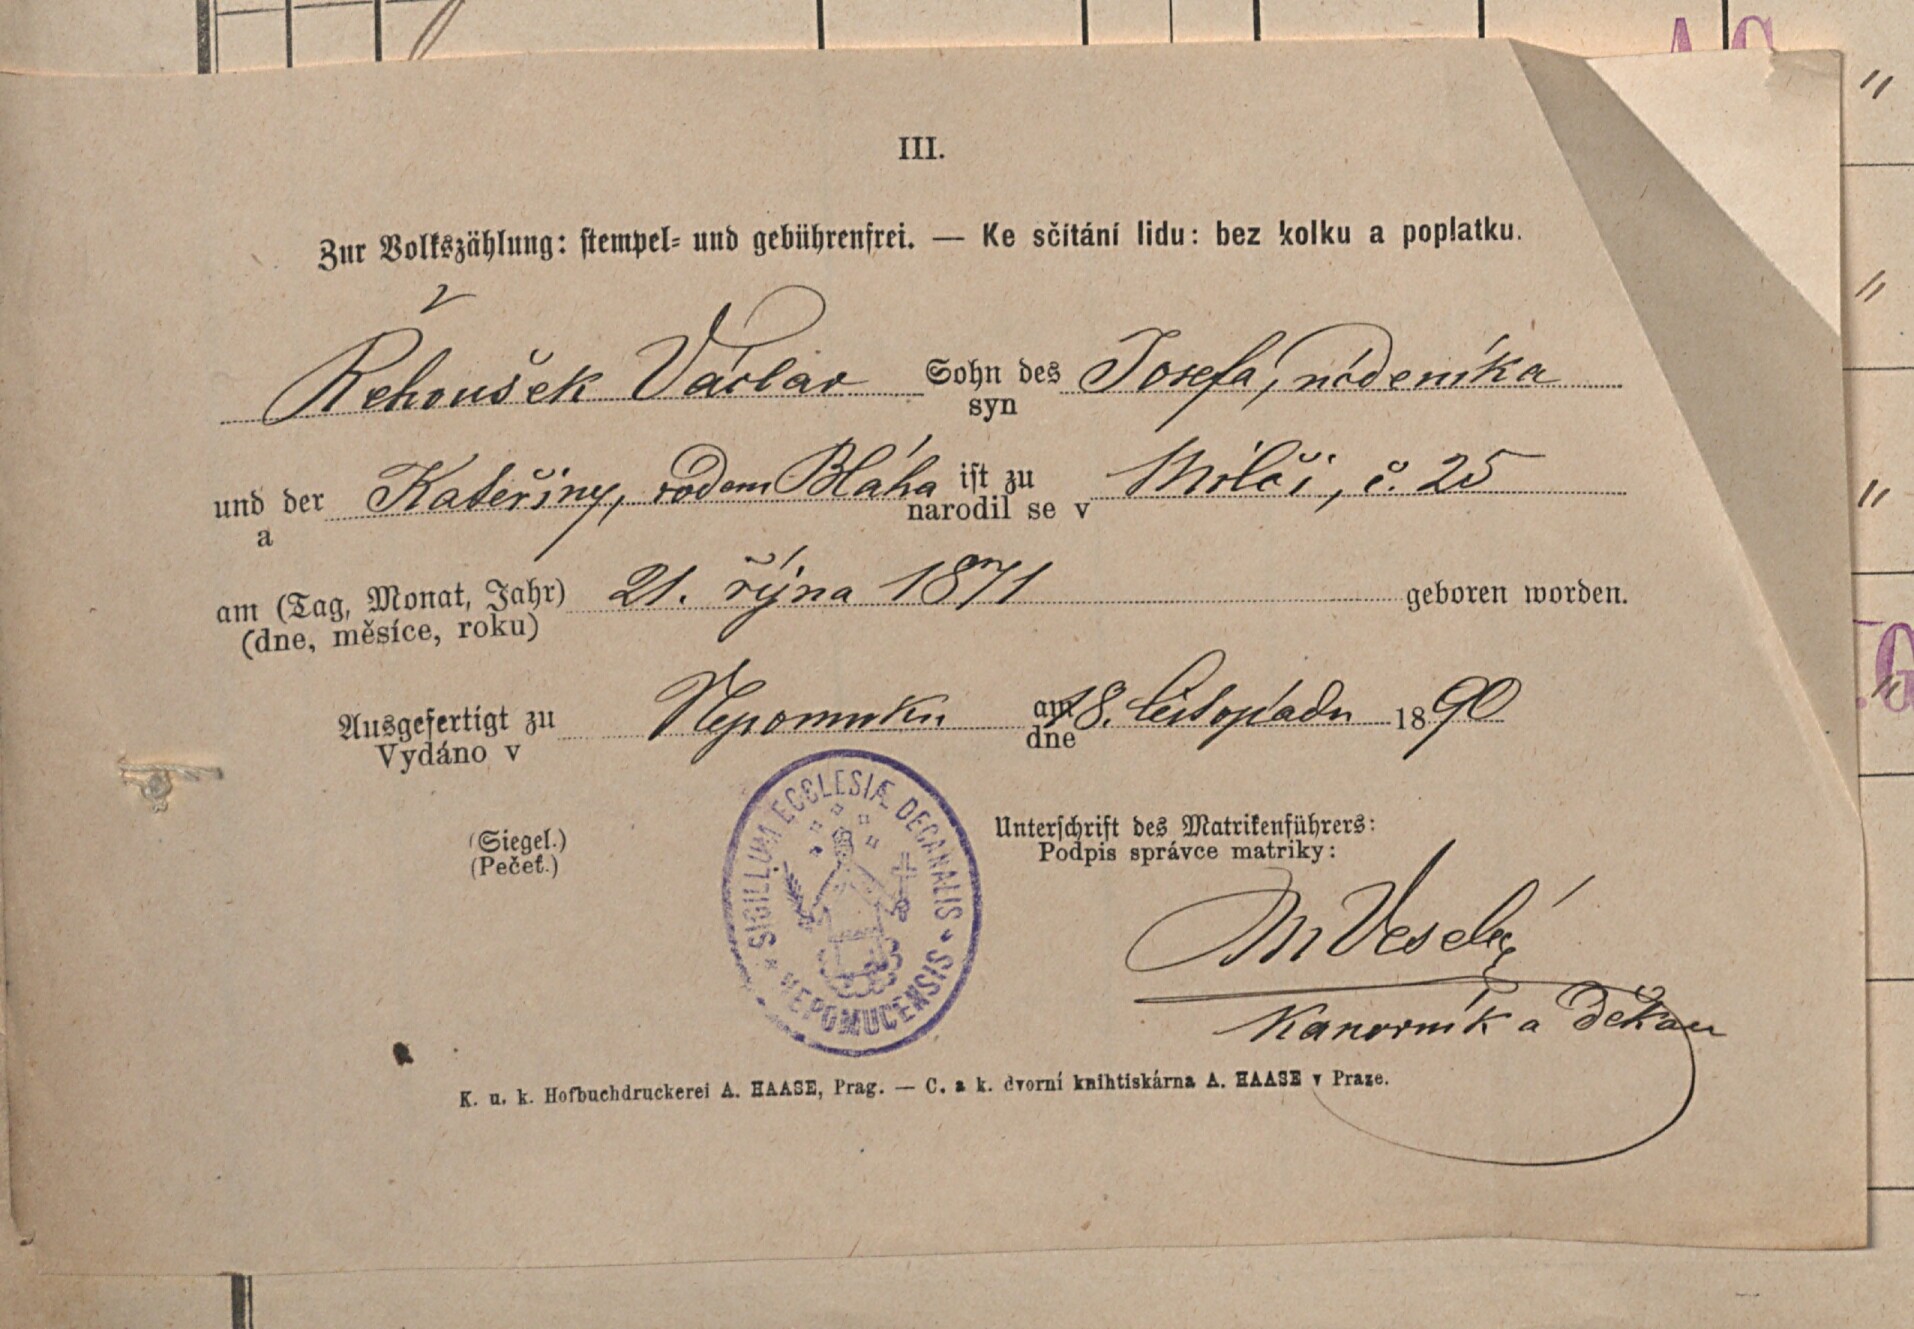 III.
Zur Volkszählung: stempel- und gebührenfrei. — Ke sčítání lidu: bez kolku a poplatku.
Řehoušek Václav Sohn des Josefa, nádeníka
syn
und der Kateřiny, rodem Bláha ist zu Milči, č. 25
a narodil se v
am (Tag, Monat, Jahr) 21. října 1871 geboren worden.
(dne, měsíce, roku)
Ausgefertigt zu Nepomuku am 18. listopadu 1890
Vydáno v dne
SIGILLUM ECCLESIÆ DECANALIS NEPOMUCENSIS
(Siegel.) Unterschrift des Matrikenführers:
(Pečeť.) Podpis správce matriky:
Veselý
Kanovník a děkan
K. u. k. Hofbuchdruckerei A. HAASE, Prag. — C. a k. dvorní knihtiskárna A. HAASE v Praze.